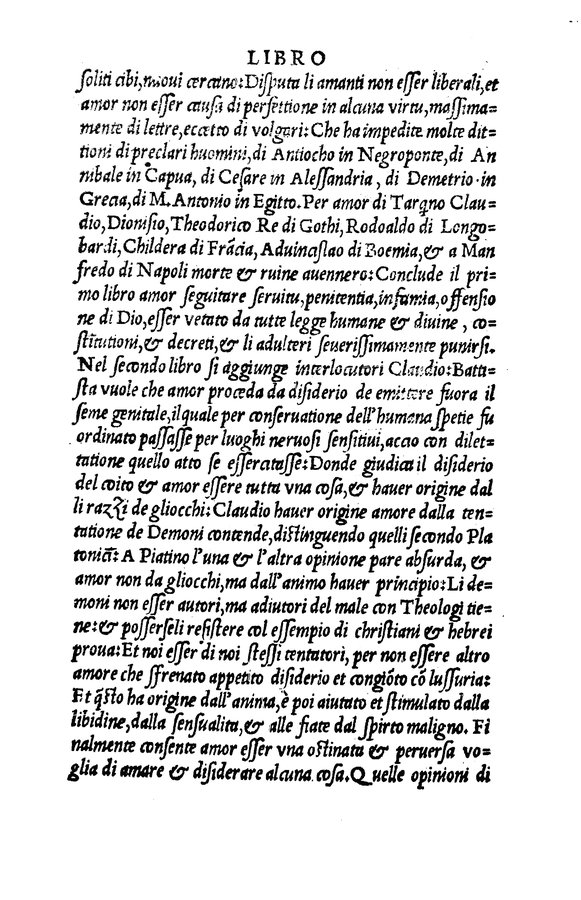 LIBRO
ſoliti cibi, nuoui cercano: Diſputa li amanti non eſſer liberali, et
amor non eſſer cauſa di perfettione in alcuna virtu, maſſima=
mente di lettre, eccetto di volgari: Che ha impedite molte dit=
tioni di preclari huomini, di Antiocho in Negroponte, di An
nibale in Capua, di Ceſare in Aleſſandria, di Demetrio in
Grecia, di M. Antonio in Egitto. Per amor di Tarqno Clau=
dio, Dioniſio, Theodorico Re di Gothi, Rodoaldo di Longo=
bardi, Childera di Frãcia, Aduinaſlao di Boemia, & a Man
fredo di Napoli morte & ruine auennero: Conclude il pri=
mo libro amor ſeguitare ſeruitu, penitentia, infamia, offenſio
ne di Dio, eſſer vetato da tutte legge humane & diuine, co=
ſtitutioni, & decreti, & li adulteri ſeueriſſimamente punirſi.
Nel ſecondo libro ſi aggiunge interlocutori Claudio: Batti=
ſta vuole che amor proceda da diſiderio de emittere fuora il
ſeme genitale, il quale per conſeruatione dell'humana ſpetie fu
ordinato paſſaſſe per luoghi neruoſi ſenſitiui, accio con dilet=
tatione quello atto ſe eſſercitaſſe: Donde giudica il diſiderio
del coito & amor eſſere tutta vna coſa, & hauer origine dal
li razzi de gliocchi: Claudio hauer origine amore dalla ten=
tatione de Demoni contende, diſtinguendo quelli ſecondo Pla
tonici: A Platino l'una & l'altra opinione pare abſurda, &
amor non da gliocchi, ma dall'animo hauer principio: Li de=
moni non eſſer autori, ma adiutori del male con Theologi tie=
ne: & poſſerſeli reſiſtere col eſſempio di chriſtiani & hebrei
proua: Et noi eſſer di noi ſteſſi tentatori, per non eſſere altro
amore che ſfrenato appetito diſiderio et congiõto cõ luſſuria:
Et q̃ſto ha origine dall'anima, è poi aiutato et ſtimulato dalla
libidine, dalla ſenſualita, & alle fiate dal ſpirto maligno. Fi
nalmente conſente amor eſſer vna oſtinata & peruerſa vo=
glia di amare & diſiderare alcuna coſa. Quelle opinioni di